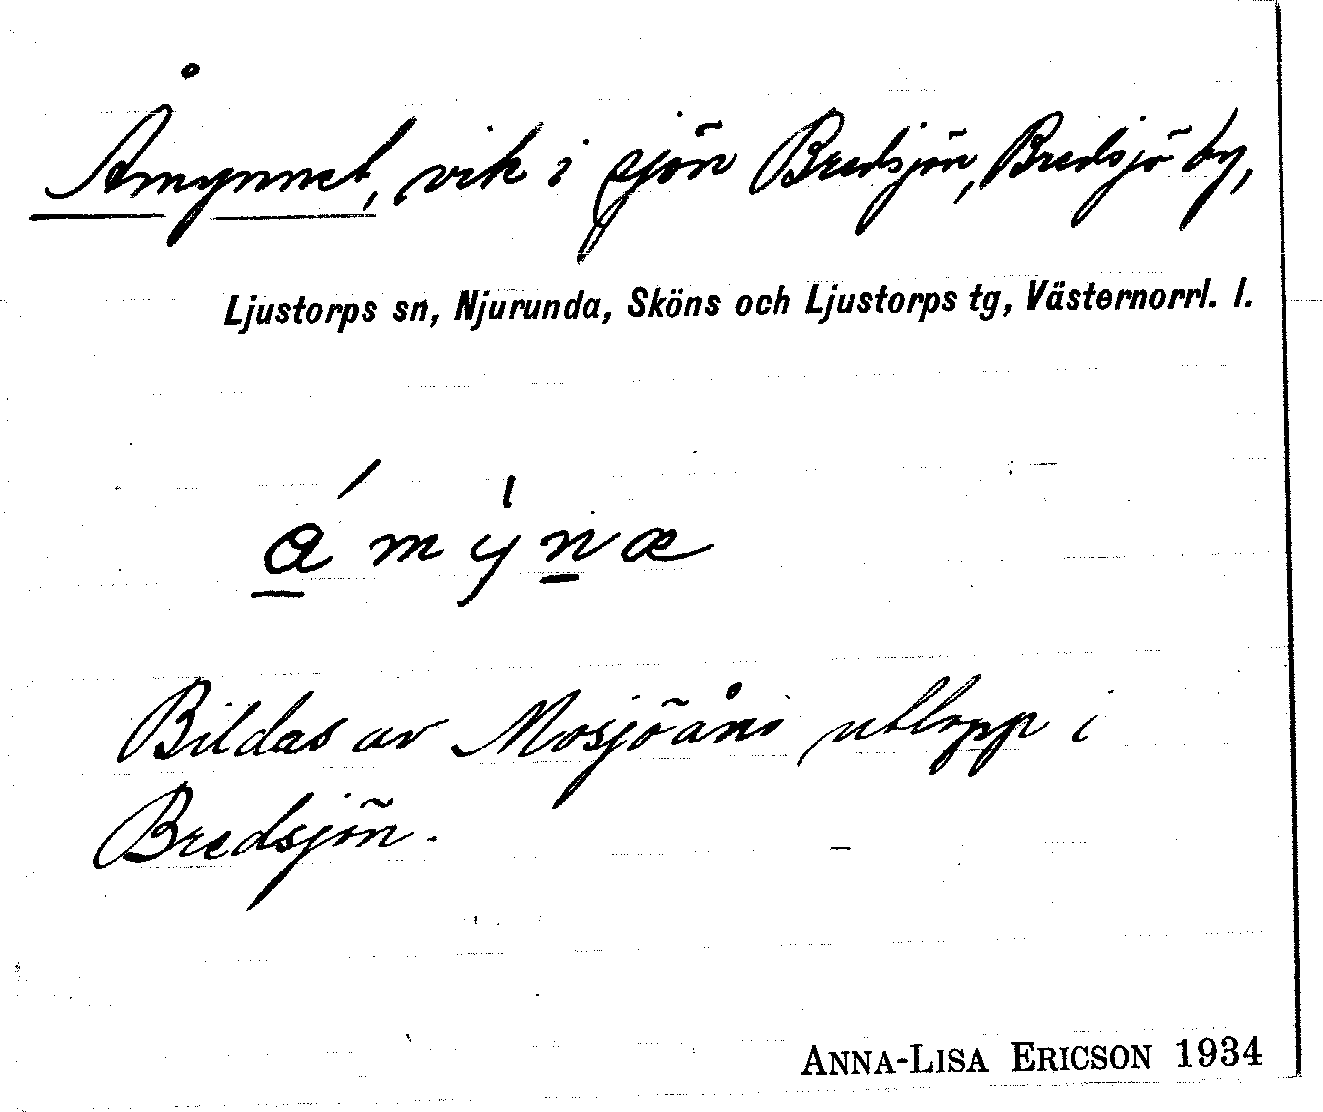 Åmynnet, vik i sjön Bredsjön, Bredsjö by,
Ljustorps sn, Njurunda, Sköns och Ljustorps tg, Västernorrl. l.
á̲ m y̍ n̲ æ
Bildas av Mosjöåns utlopp i
Bredsjön.
ANNA-LISA ERICSON 1934